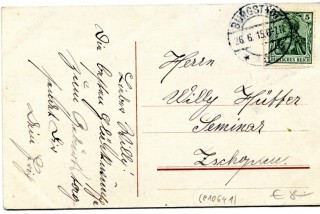 Lieber Willy!
Die besten Glückwünsche
zum Geburtstag
sendet Dir
Dein
BURGSTÄDT
26.6.15.
5
DEUTSCHES REICH
Herrn
Willy Hütter
Seminar
Zschopau